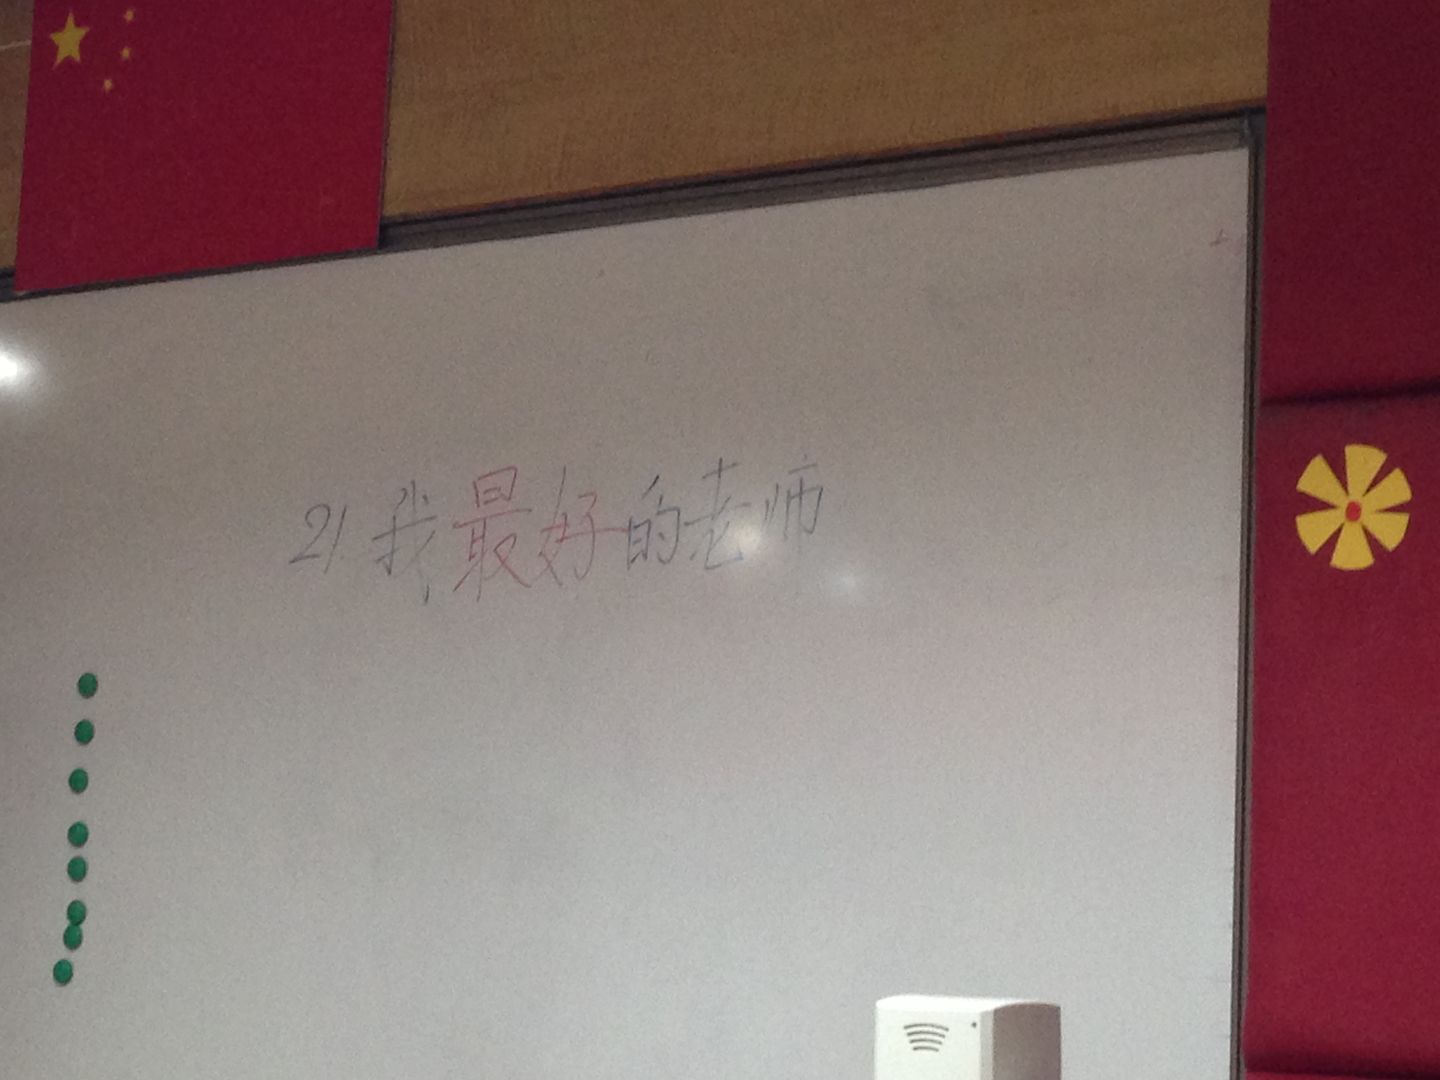 21. 我最好的老师